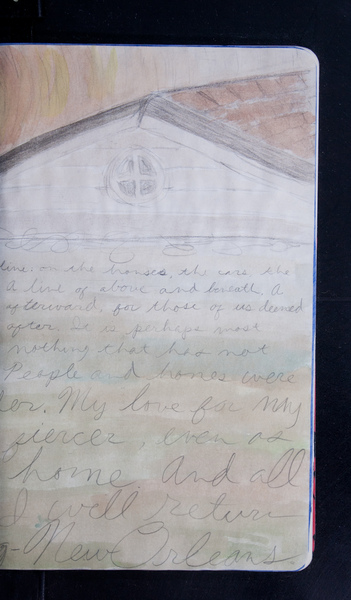 line. on the houses, the cars, the
A line of above and breath. A
afterward, for those of us deemed
after. It is perhaps most
nothing that has not
People and homes were
er. My love for my
fiercer, even as
home. And all
I will return
New Orleans.